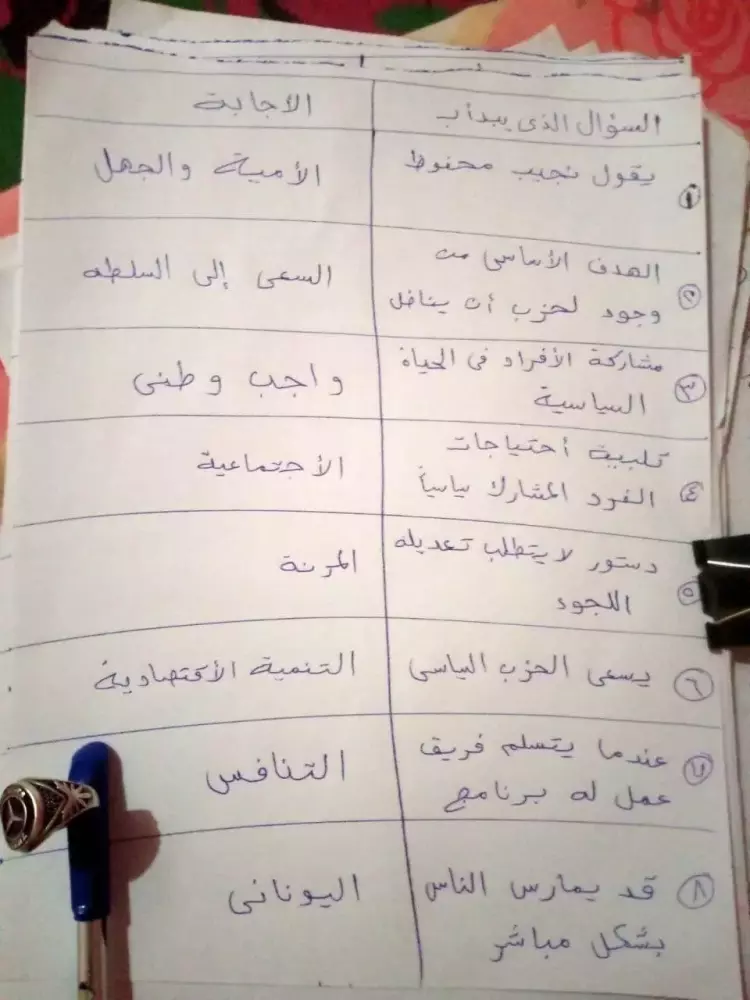 السؤال الذى يبدأ ب
الأجابة
١ يقول نجيب محفوظ
الأمية والجهل
٢ الهدف الأساسى من
وجود لحزب أن يناضل
السعى إلى السلطه
٣ مشاركة الأفراد فى الحياة
السياسية
واجب وطنى
٤ تلبية أحتياجات
الفرد المشارك سياسياً
الأجتماعية
٥ دستور لا يتطلب تعديله
اللجوء
المرنة
٦ يسعى الحزب السياسى
التنمية الأقتصادية
٧ عندما يتسلم فريق
عمل له برنامج
التنافس
٨ قد يمارس الناس
بشكل مباشر
اليونانى